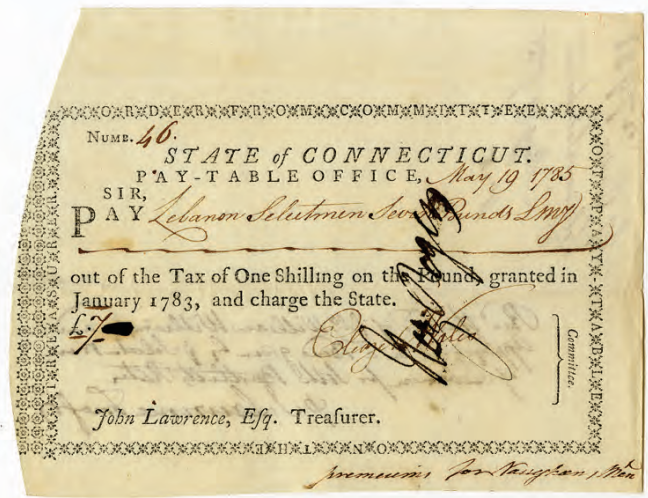 ORDER FROM COMMITTEE
OF PAY TABLE
ON THE
TREASURER
NUMB. 46.
STATE of CONNECTICUT.
PAY-TABLE OFFICE, May 19 1785
SIR,
PAY Lebanon Selectmen Seven Pounds L my
out of the Tax of One Shilling on the Pound, granted in
January 1783, and charge the State.
£.7
Eliezer Wales
Committee.
John Lawrence, Esq. Treaſurer.
premeiums for Vaughan, Men